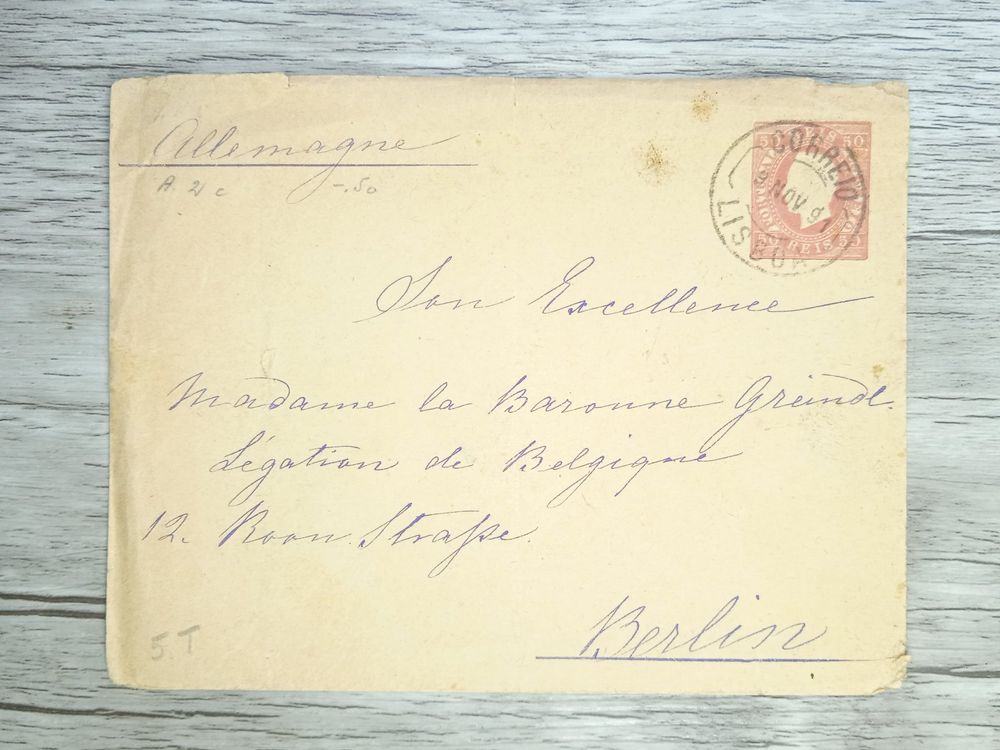 Allemagne
50 REIS 50
CORREIO
NOV 91
LISBOA
50 REIS 50
A. 21 c -.50
Son Excellence
Madame la Baronne Greindl.
Légation de Belgique
12. Roon. Straße.
Berlin
5.T